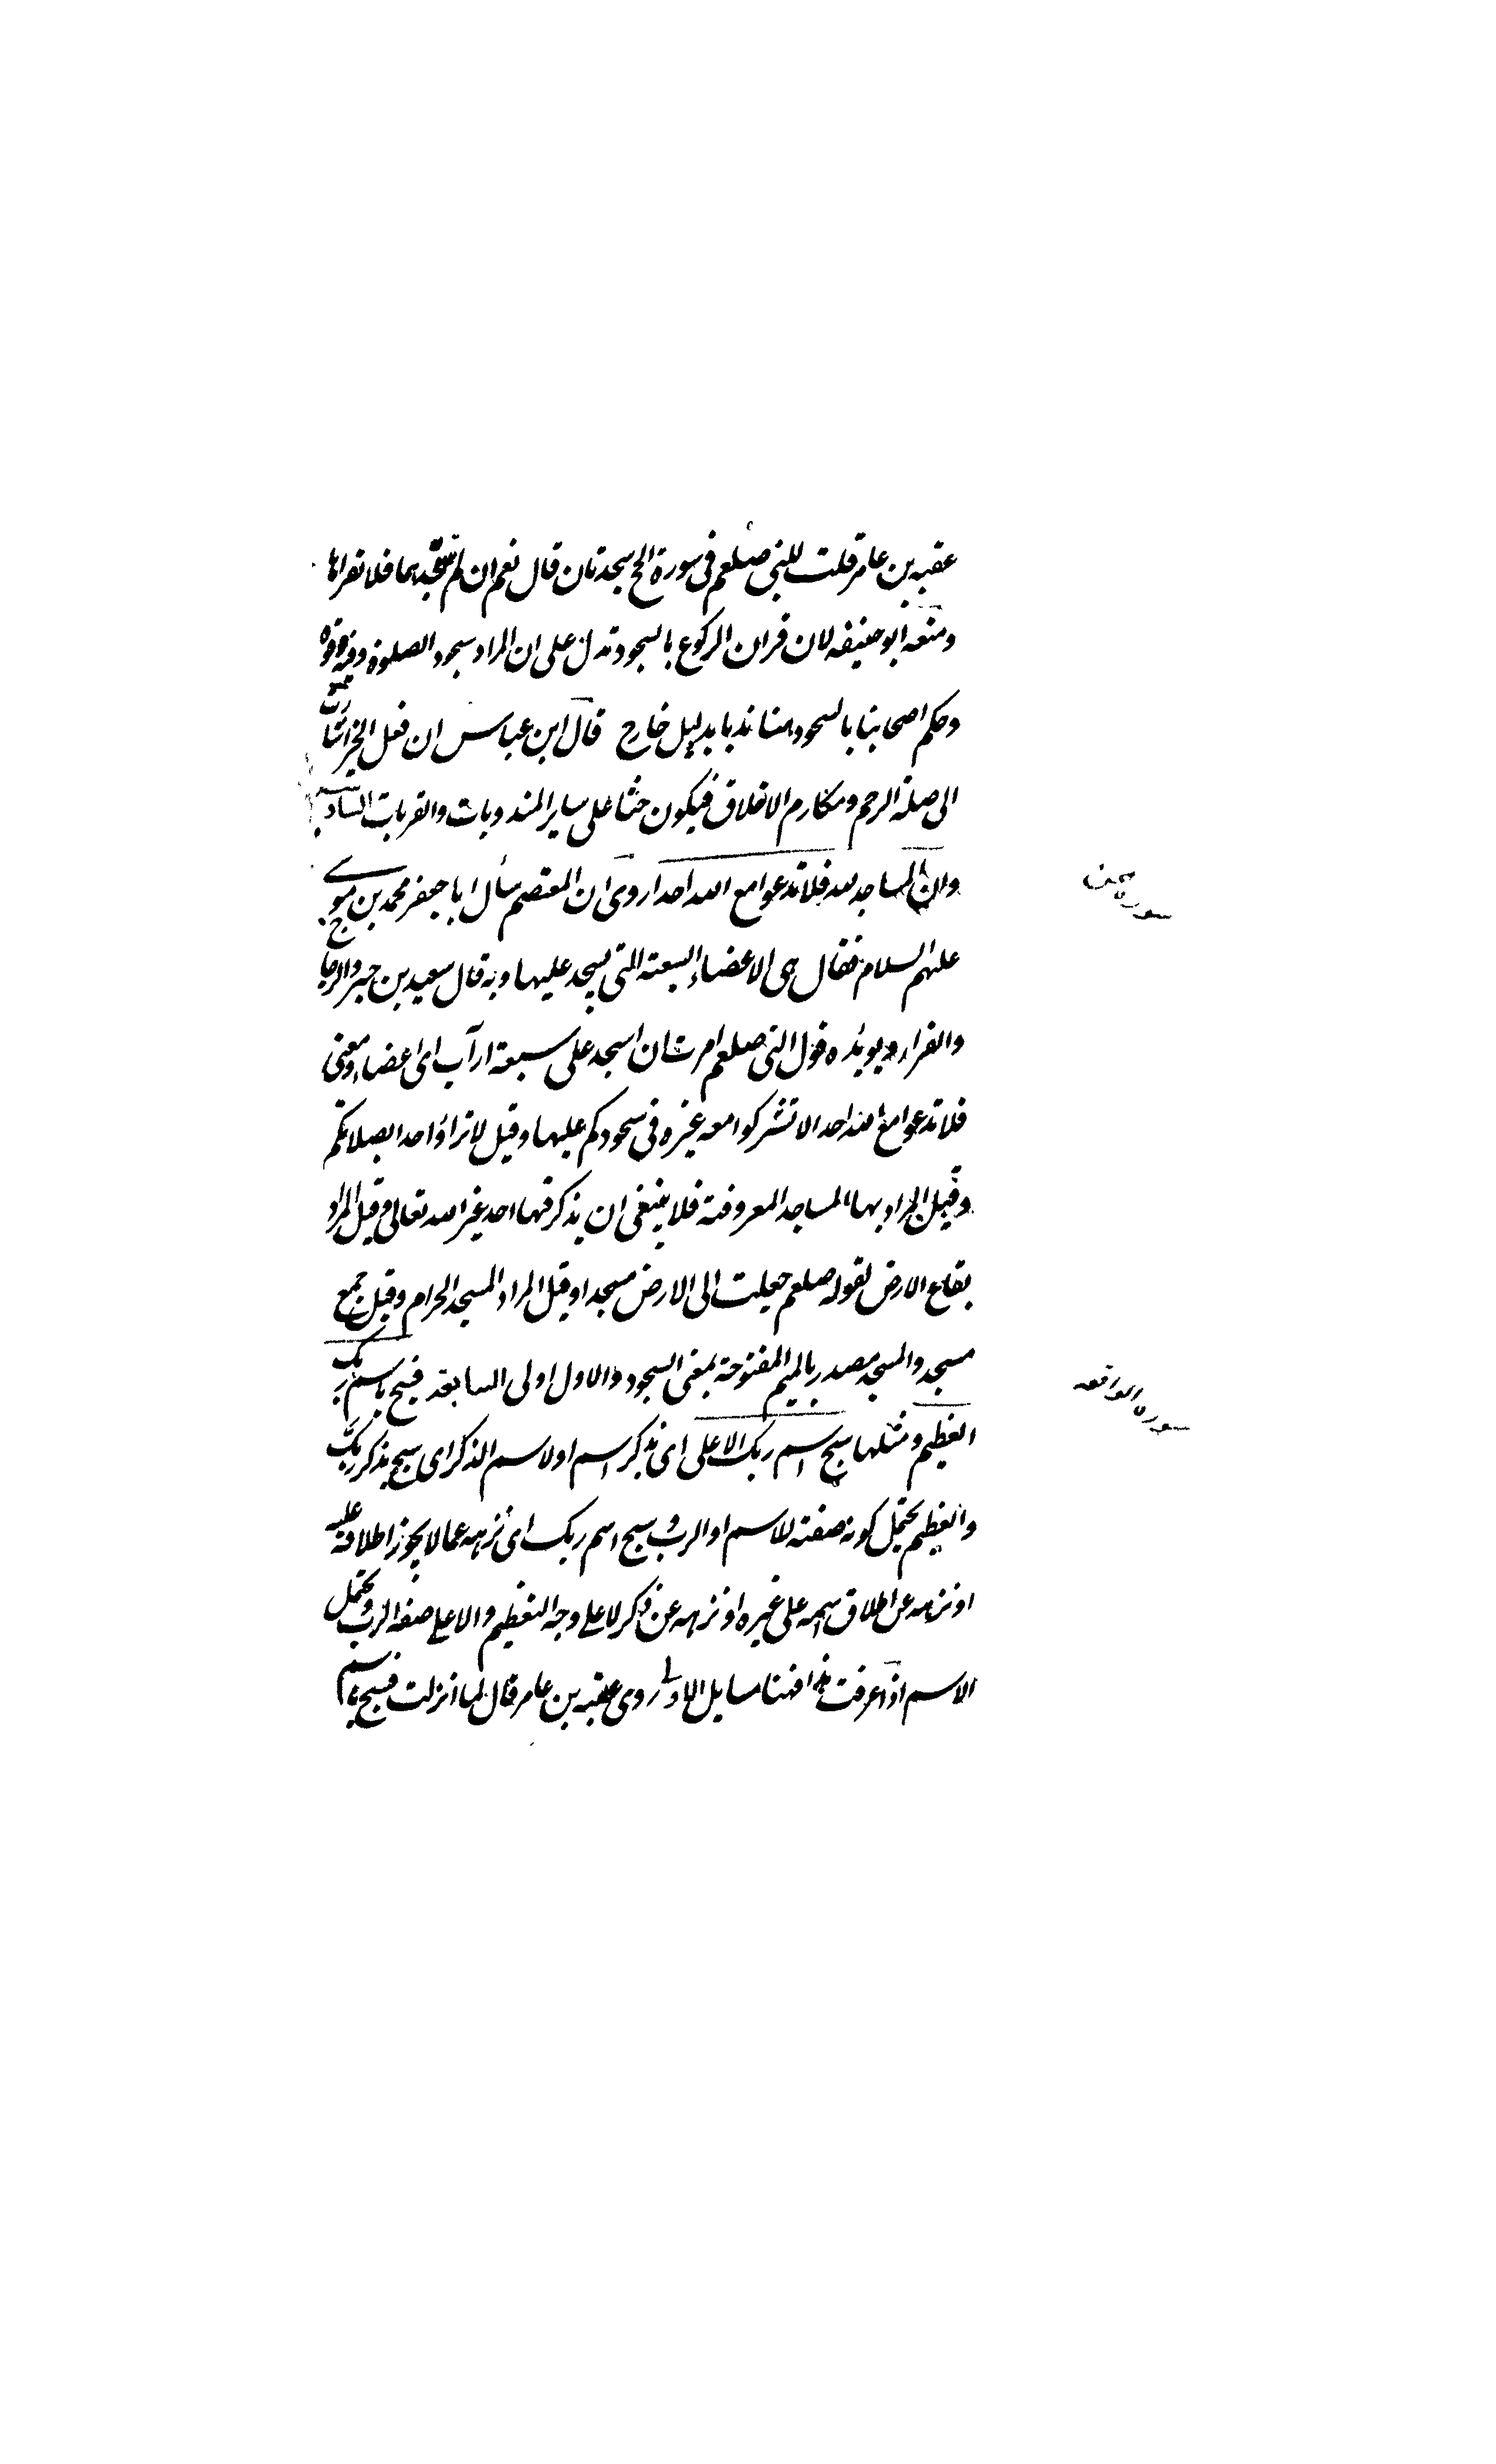 عقبه بن عامر قلت للنبى صلعم فى سورة الحج سجدتان قال نعم ان لم تسجدهما فلا تقراها
ومنعه ابو حنيفه لان قران الركوع بالسجود تدل على ان المراد سجود الصلوة وفيه قوة
وحكم اصحابنا بالسجود هنا ندبا بدليل خارج قال ابن عباس ان فعل الخير اشارة
الى صلة الرحم ومكارم الاخلاق فيكون حثا على ساير المندوبات والقربات السادسه
وان المساجد لله فلا تدعوا مع الله احدا روى ان المعتصم سأل ابا جعفر محمد بن موسى
سورة جن
عليهم السلام فقال هى الاعضاء السبعة التى يسجد عليها وبه قال سعيد بن جبير والزجاج
والفراء ويويده قول النبى صلعم امرت ان اسجد على سبعة ارآب اى اعضاء ومعنى
فلا تدعوا مع الله احدا لا تشركوا معه غيره فى سجودكم عليها وقيل لا تراؤا احدا بصلاتكم
وقيل المراد بها المساجد المعروفة فلا ينبغى ان يذكر فيها احد غير الله تعالى وقيل المراد
بقاع الارض لقوله صلعم جعلت لى الارض مسجدا وقيل المراد المسجد الحرام وقيل جمع
مسجد والمسجد مصدر بالميم المفتوحة بمعنى السجود والاول اولى السابعة فسبح باسم ربك
سورة الواقعه
العظيم ومثلها سبح اسم ربك الاعلى اى بذكر اسم او الاسم الذكر اى سبح بذكر ربك
والعظيم يحتمل كونه صفته للاسم او الرب وسبح اسم ربك اى نزهه عما لا يجوز اطلاقه عليه
او نزهه عن اطلاق اسمه على غيره او نزهه عن ذكر لا على وجه التعظيم والاعلى صفة الرب ويحتمل
الاسم اذا عرفت هذا فهنا مسايل الاولى روى عقبه بن عامر قال لما نزلت فسبح باسم